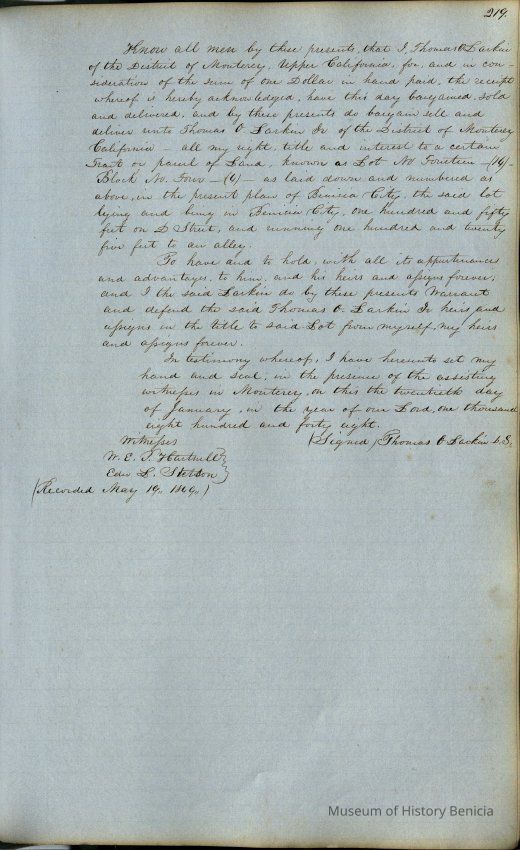 219.
Know all men by these presents, that I, Thomas O Larkin
of the District of Monterey, Upper California, for, and in con-
sideration of the sum of one Dollar in hand paid, the receipt
whereof is hereby acknowledged, have this day bargained, sold
and delivered, and by these presents do bargain sell and
deliver unto Thomas O Larkin Jr of the District of Monterey
California – all my right, title and interest to a certain
Tract or parcel of Land, known as Lot No Fourteen –(14)–
Block No. Four –(4)– as laid down and numbered as
above, in the present plan of Benicia City, the said lot
lying and being in Benicia City, one hundred and fifty
feet on D Street, and running one hundred and twenty
five feet to an alley.
To have and to hold, with all its appurtenances
and advantages, to him, and his heirs and assigns forever;
and I the said Larkin do by these presents Warrant
and defend the said Thomas O. Larkin Jr heirs and
assigns in the title to said Lot from myself, my heirs
and assigns forever.
In testimony whereof, I have hereunto set my
hand and seal, in the presence of the assisting
witnesses in Monterey, on this the twentieth day
of January, in the year of our Lord, one thousand
eight hundred and forty eight.
Witnesses (Signed) Thomas O Larkin L.S.
W. E. P. Hartnell
Edw L. Stetson
(Recorded May 19,
Museum of History Benicia